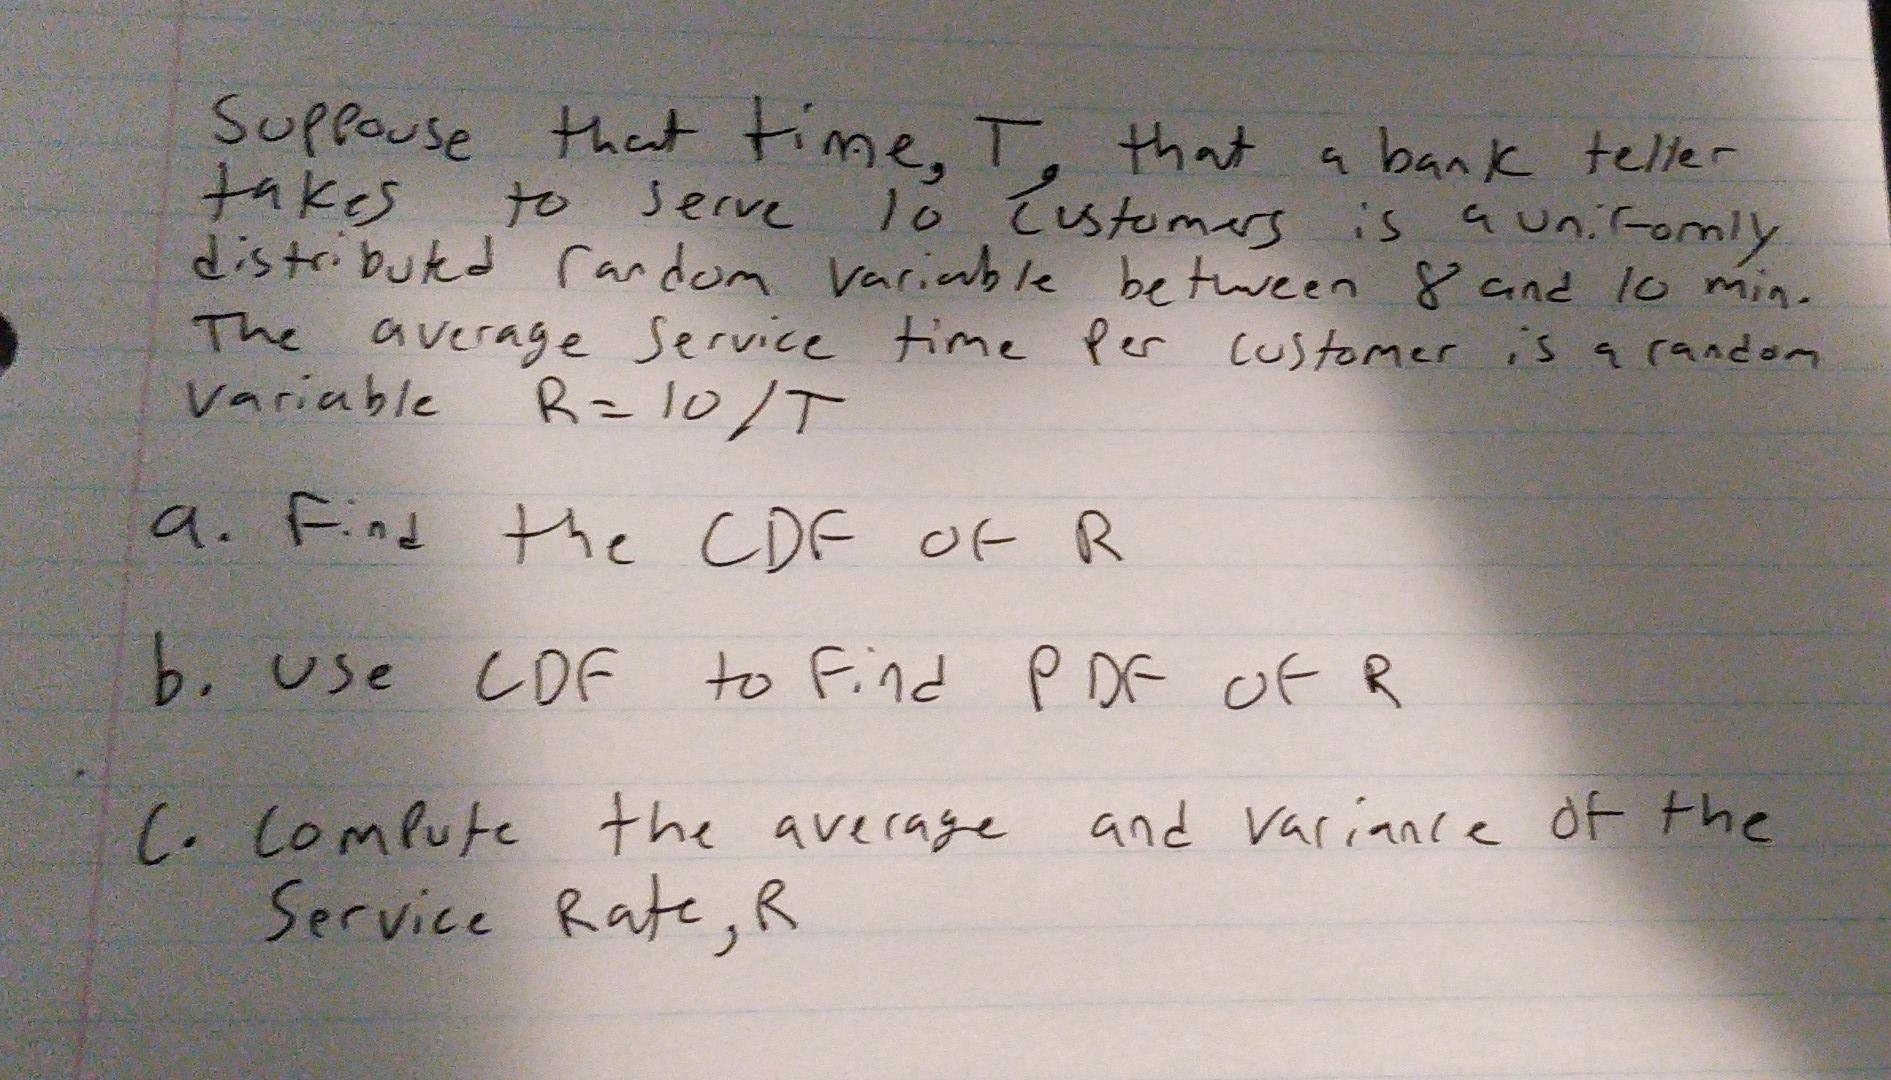 Suppouse that time, T, that a bank teller
takes to serve 10 customers is a unifomly
distributed random variable between 8 and 10 min.
The average service time per customer is a random
variable R=10/T
a. Find the CDF of R
b. Use CDF to find PDF of R
C. Compute the average and variance of the
Service Rate, R